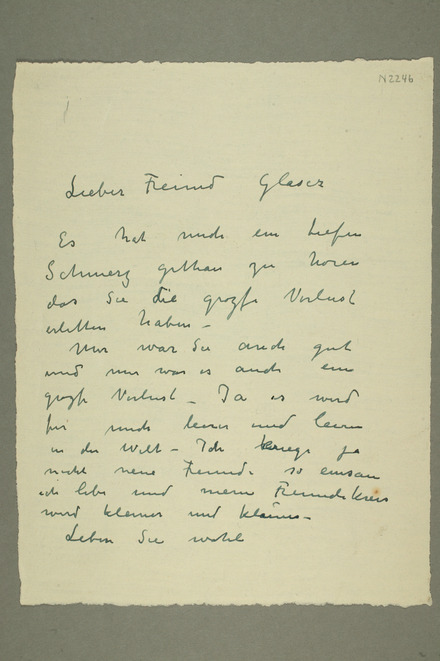 N2246
Lieber Freund Glaser
Es hat mich ein tiefer
Schmerz gethan zu hören
das Sie die grozse Verlust
erlitten haben –
Mir war Sie auch gut
und mir war es auch ein
grozse Verlust – Ja es wird
für mich leerer und leerer
in der Welt – Ich kriege ja
nicht neue Freunde so einsam
ich lebe und mein Freundskreis
wird kleiner und kleiner –
Leben Sie wohl